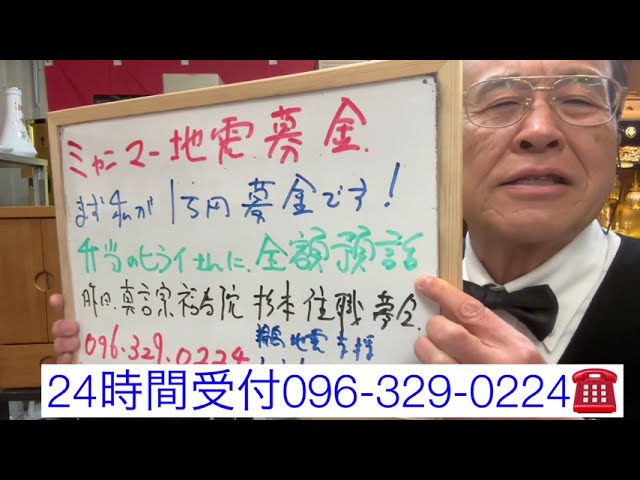 ミャンマー地震募金
まず私が1万円募金です!
弁当のヒライさんに、全額預託
昨日、真言宗福寿院 杉本住職
096.329.0224
地震支援
24時間受付096-329-0224☎